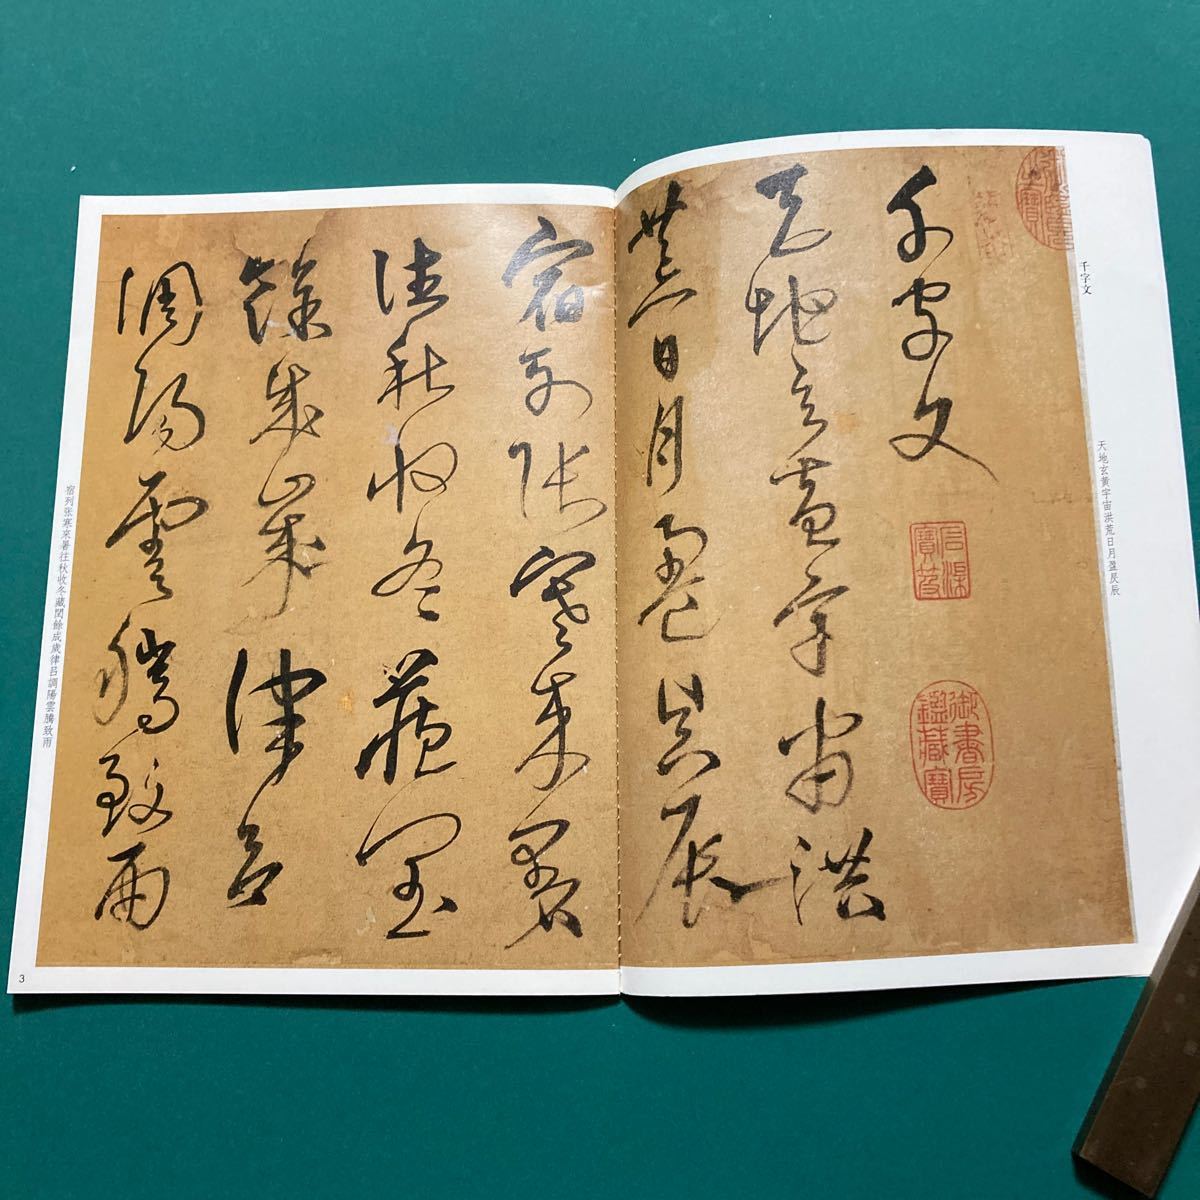 千字文
天地玄黃宇宙洪荒日月盈昃辰
千字文
石渠寶笈
御書房鑑藏寶
天地玄黃宇宙洪
荒日月盈昃辰
宿列張寒來暑
往秋收冬藏閏
餘成歲律呂
調陽雲騰致雨
宿列张寒來暑往秋收冬藏閏餘成歲律呂調陽雲騰致雨
3